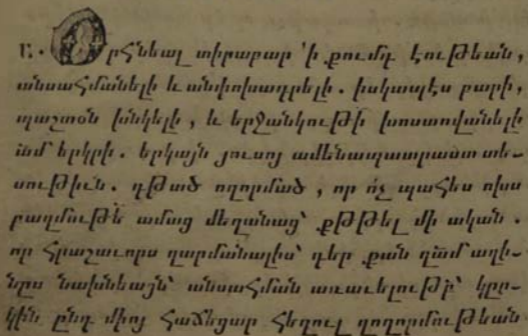 Ը. Օրհնեալ տիրաբար ՚ի քումդ էութեան,
անսահմանելի և անփոխադրելի. իսկապէս բարի,
պաշտօն խնկելի, և երջանկութի խոստովանելի
ամ երկրի. երկայն յուսոյ ամենապատրաստ տե-
սութիւն. գթած ողորմած, որ ոչ պահես ոխս
բազմութե ամաց մեղանաց՝ քթթել մի ական.
որ հրաշաւորս զարմանալիս՝ գեր քան զամ աղի-
նախնեայն՝ անսահման առաւելութի՝ կըր-
կին ընդ միոյ հաճեցար հեղուլ զողորմութեան